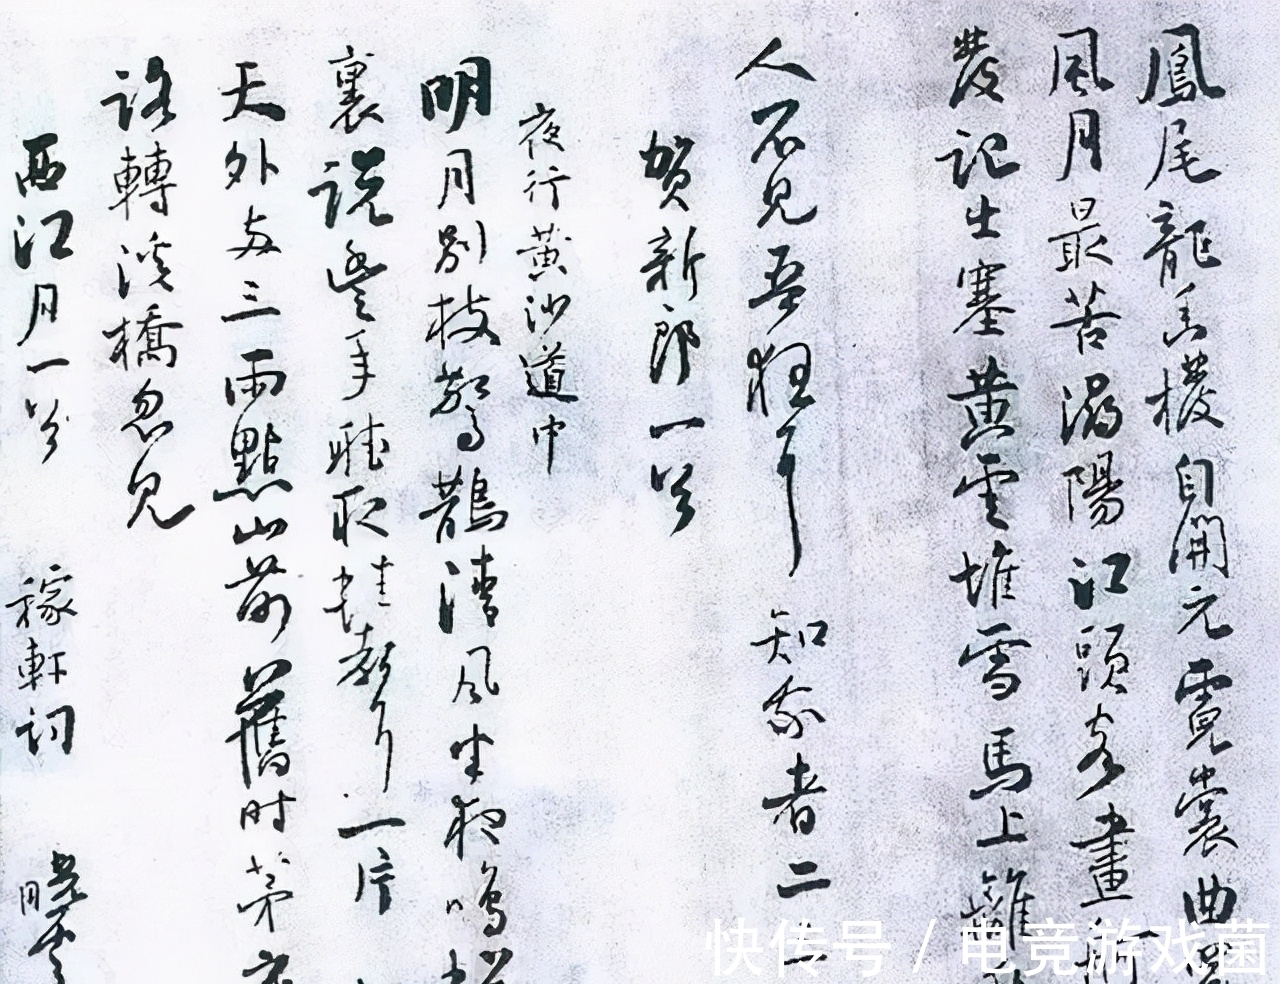 鳳尾龍香撥自開元霓裳曲罷
風月最苦潯陽江頭客畫舸
發記出塞黄雲堆雪馬上離
人不見吾狂耳知我者二三
贺新郎一首
夜行黄沙道中
明月别枝驚鵲清風半夜鳴蟬
裏説豐年聽取蛙聲一片
天外两三雨點山前舊时茅店
路轉溪橋忽見
西江月一首 稼軒词 曉雲
快传号/电竞游戏菌